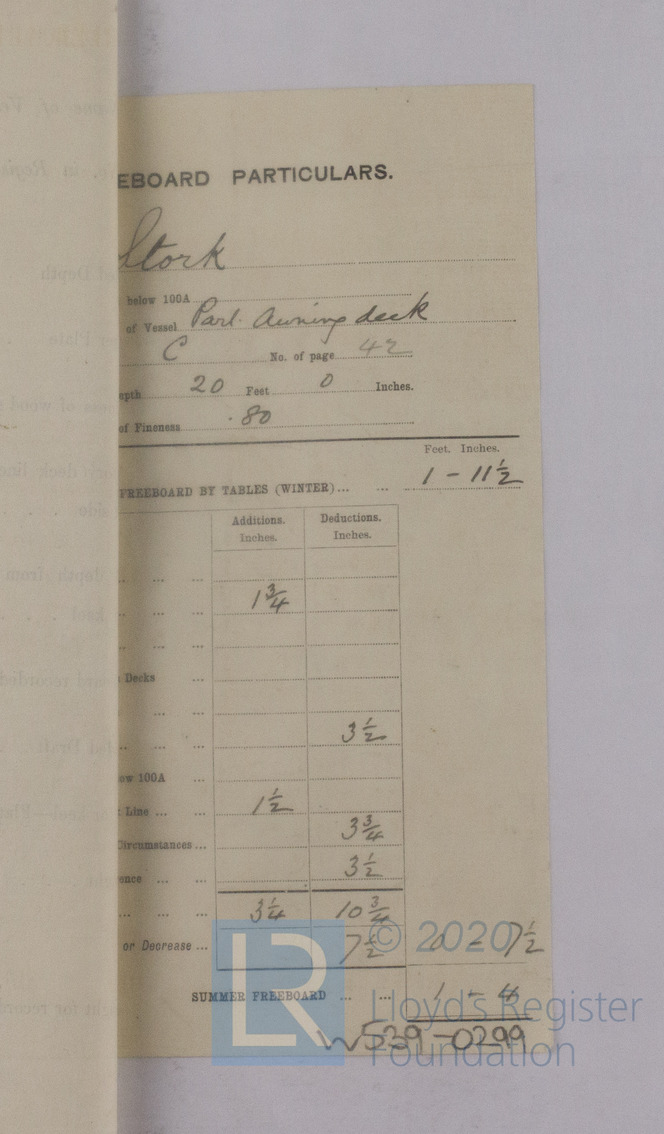 EBOARD PARTICULARS.
Stork
below 100A
of Vessel Part Awning deck
C No. of page 42
epth 20 Feet 0 Inches.
of Fineness .80
Feet. Inches.
FREEBOARD BY TABLES (WINTER)... ... 1 - 11 1/2
Additions. Deductions.
Inches. Inches.
1 3/4
Decks ...
3 1/2
ow 100A ...
Line ... ... 1 1/2
Circumstances... 3 3/4
ence ... ... 3 1/2
... ... ... 3 1/4 10 3/4
or Decrease ... 7 1/2 0 - 7 1/2
SUMMER FREEBOARD ... ... 1 - 4
W539-0299
© 2020
LR
Lloyd's Register
Foundation